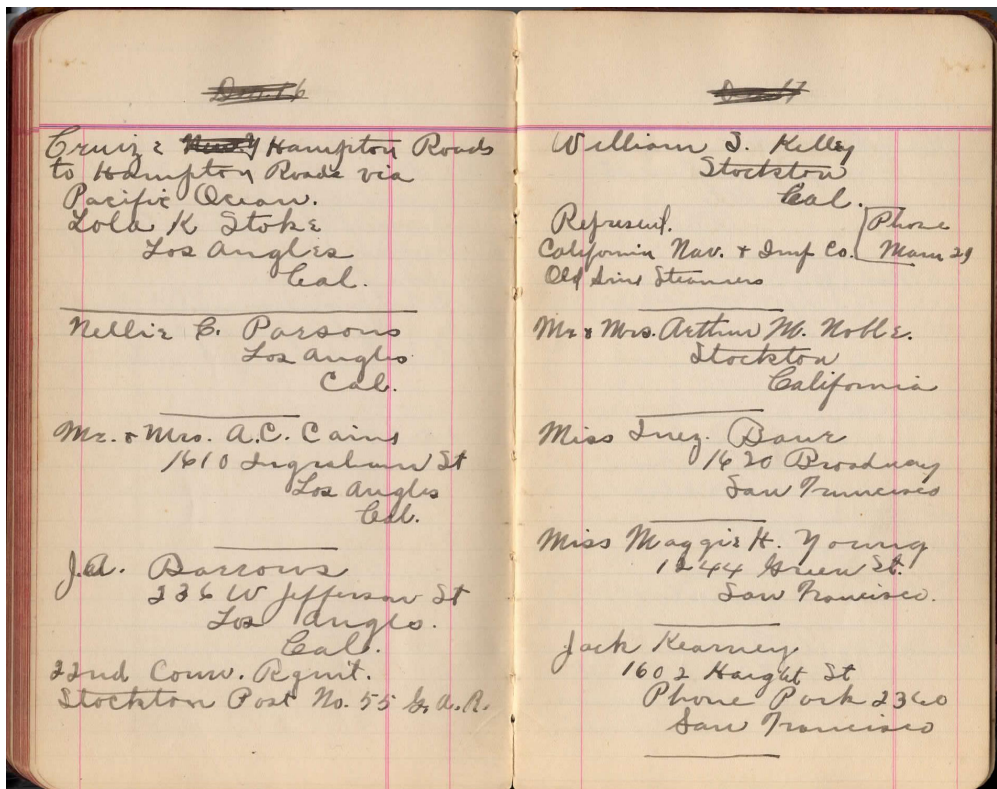 Dec. 16
Cruize Hampton Roads
to Hampton Roads via
Pacific Ocean.
Lola K Stoke
Los Angles
Cal.
Nellie C. Parsons
Los Angles
Cal.
Mr. & Mrs. A.C. Cains
1610 Ingraham St
Los Angles
Cal.
J.A. Barrows
236 W Jefferson St
Los Angls.
Cal.
22nd Conn. Rgmt.
Stockton Post No. 55 G.A.R.
Dec 17
William S. Kelley
Stockton
Cal.
Represent.
Phone
California Nav. & Imp Co.
Main 29
Old Line Steamers
Mr & Mrs. Arthur M. Noble.
Stockton
California
Miss Inez. Baur
1620 Broadway
San Francisco
Miss Maggie H. Young
1244 Green St.
San Francisco.
Jack Kearney
1602 Haight St
Phone Park 2360
San Francisco